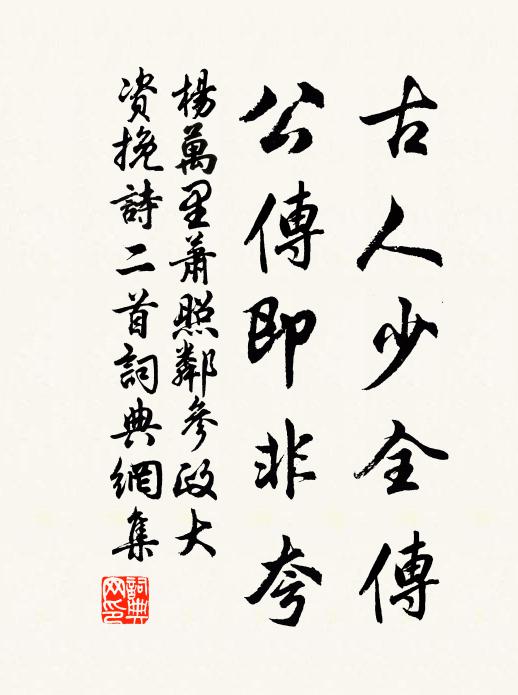 古人少全傳
公傳即非夸
楊萬里蕭照鄰參政大
资挽詩二首詞典網集
詞典網印